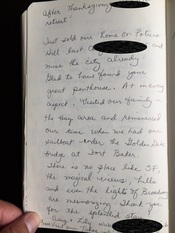 After Thanksgiving
retreat
Just sold our home on Potrero
Hill last
and
miss the city already
Glad to have found your
great penthouse. A+ on every
aspect. Visited our family in
the Bay area and reminisced
our time when we had our
sailboat under the Golden Gate
bridge at Fort Baker
There is no place like SF.
the magical views, hills
and even the lights of Broadway
are mesmerizing. Thank you
for the splendid stay